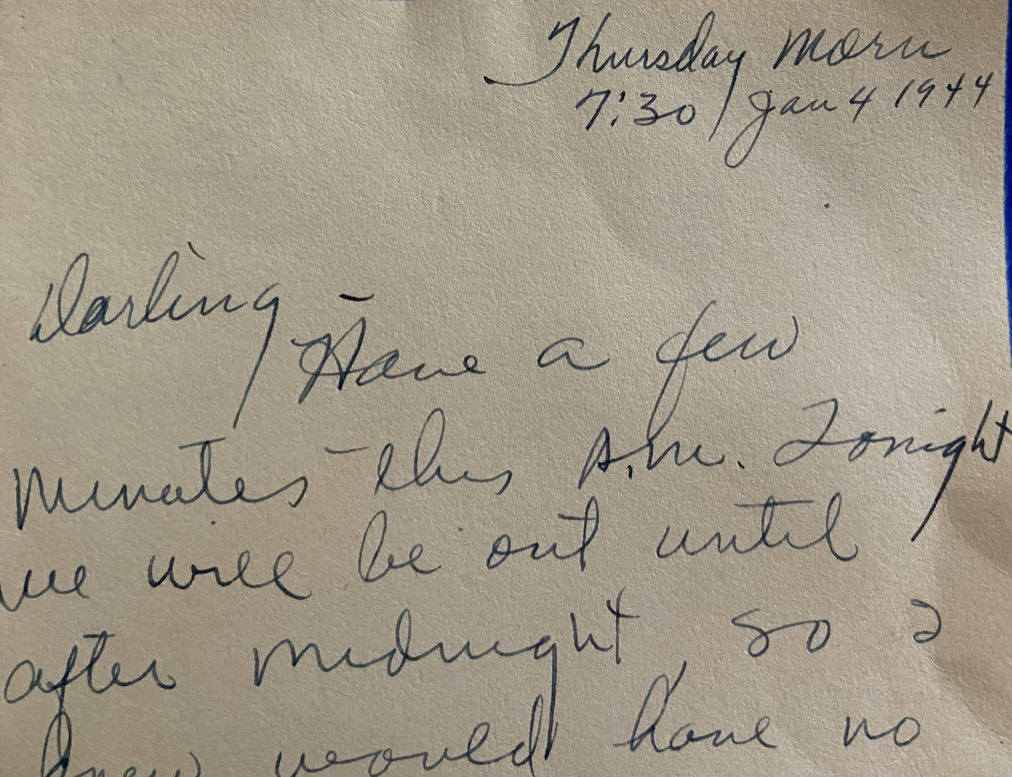 Thursday Morn
7:30 / Jan 4 1944
Darling -
Have a few
minutes this A.M. Tonight
we will be out until
after midnight, so I
knew would have no